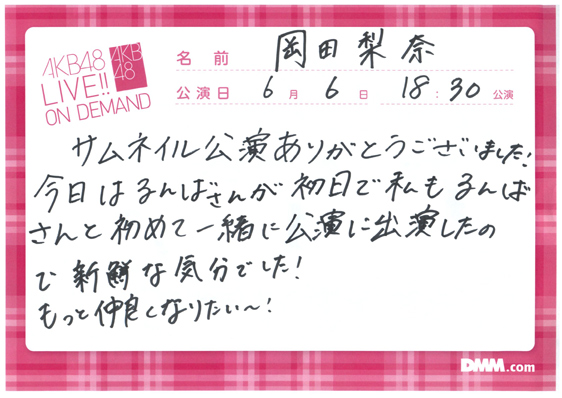 AKB48
LIVE!!
ON DEMAND
AKB
48
名前 岡田梨奈
公演日 6月6日 18:30公演
サムネイル公演ありがとうございました!
今日はるんばさんが初日で私もるんば
さんと初めて一緒に公演に出演したの
で新鮮な気分でした!
もっと仲良くなりたい〜!
DMM.com